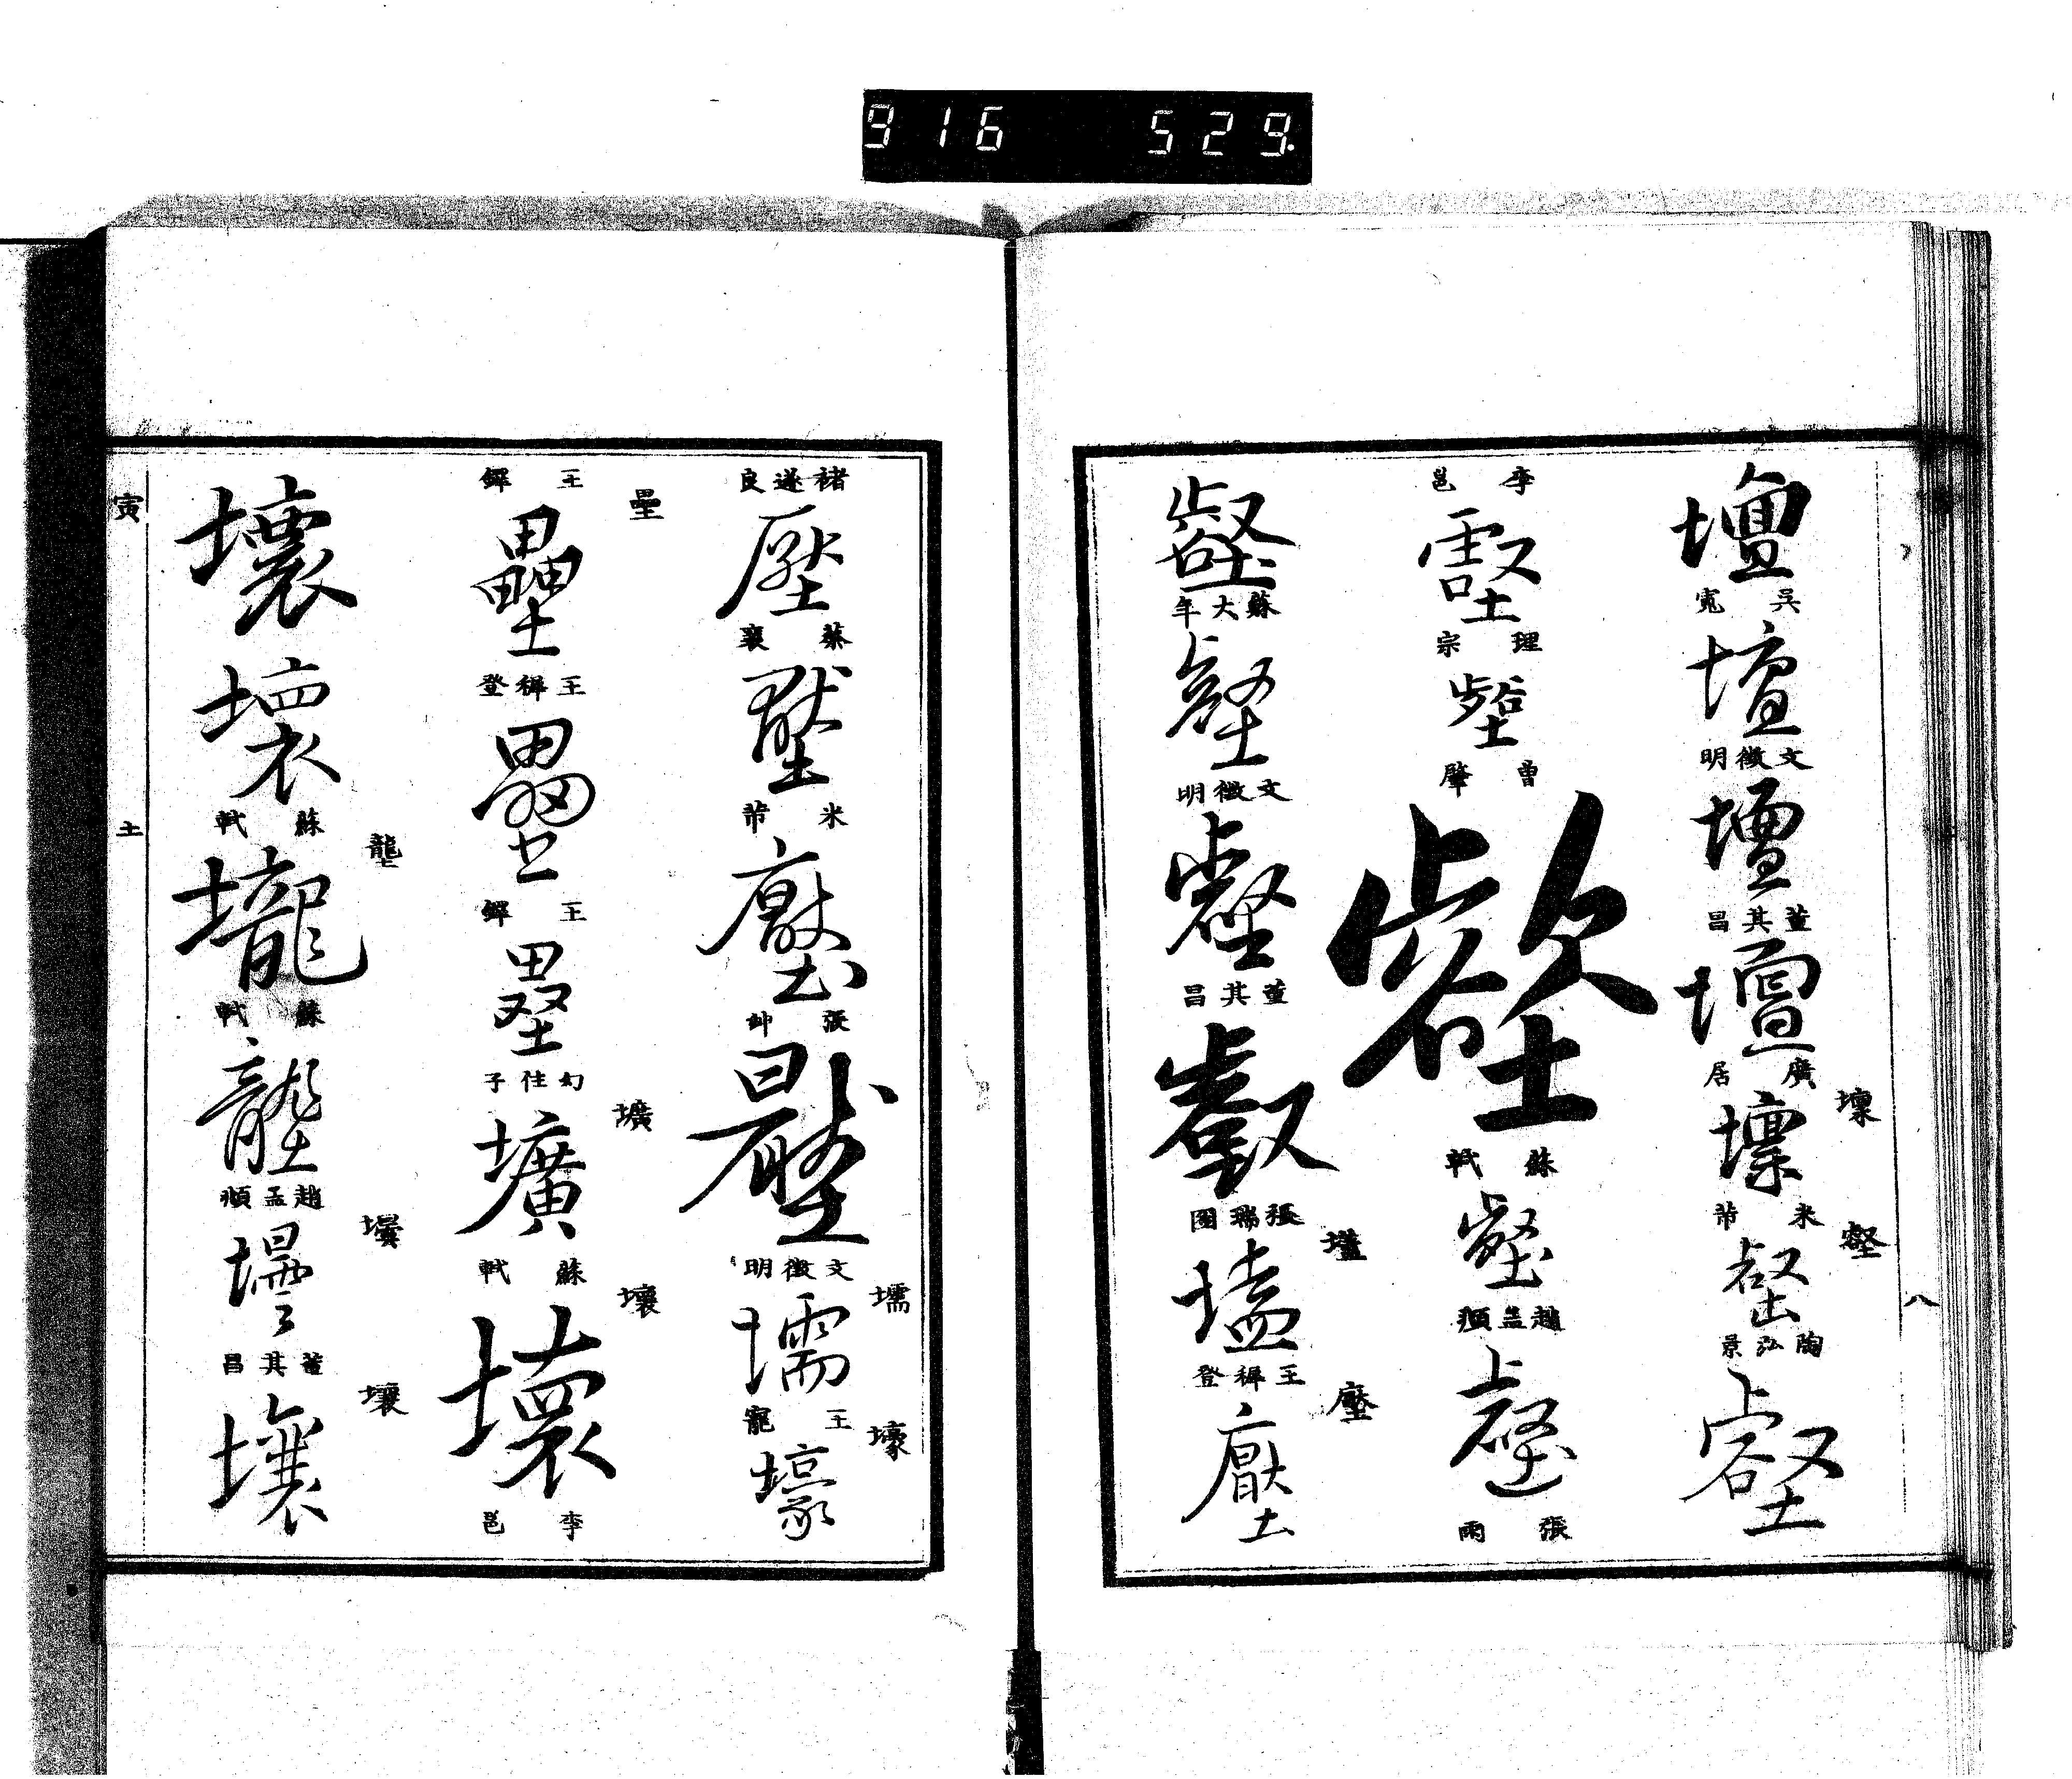 916 529.
壇
吳寬
壇
文徵明
壇
董其昌
壇
廣居
壈
壈
米芾
壑
壑
陶弘景
壑
八
李邕
壑
理宗
壑
曾肇
壑
蘇軾
壑
趙孟頫
壑
張雨
壑
蘇大年
壑
文徵明
壑
董其昌
壑
張瑞圖
壒
壒
王穉登
壓
壓
褚遂良
壓
蔡襄
壓
米芾
壓
張帥
壓
文徵明
壖
壖
王寵
壕
壕
王鐸
壘
壘
王穉登
壘
王鐸
壘
幻住子
壙
壙
蘇軾
壞
壞
李邕
壞
壞
蘇軾
壟
壠
蘇軾
壟
趙孟頫
壜
董其昌
壤
壤
寅
土